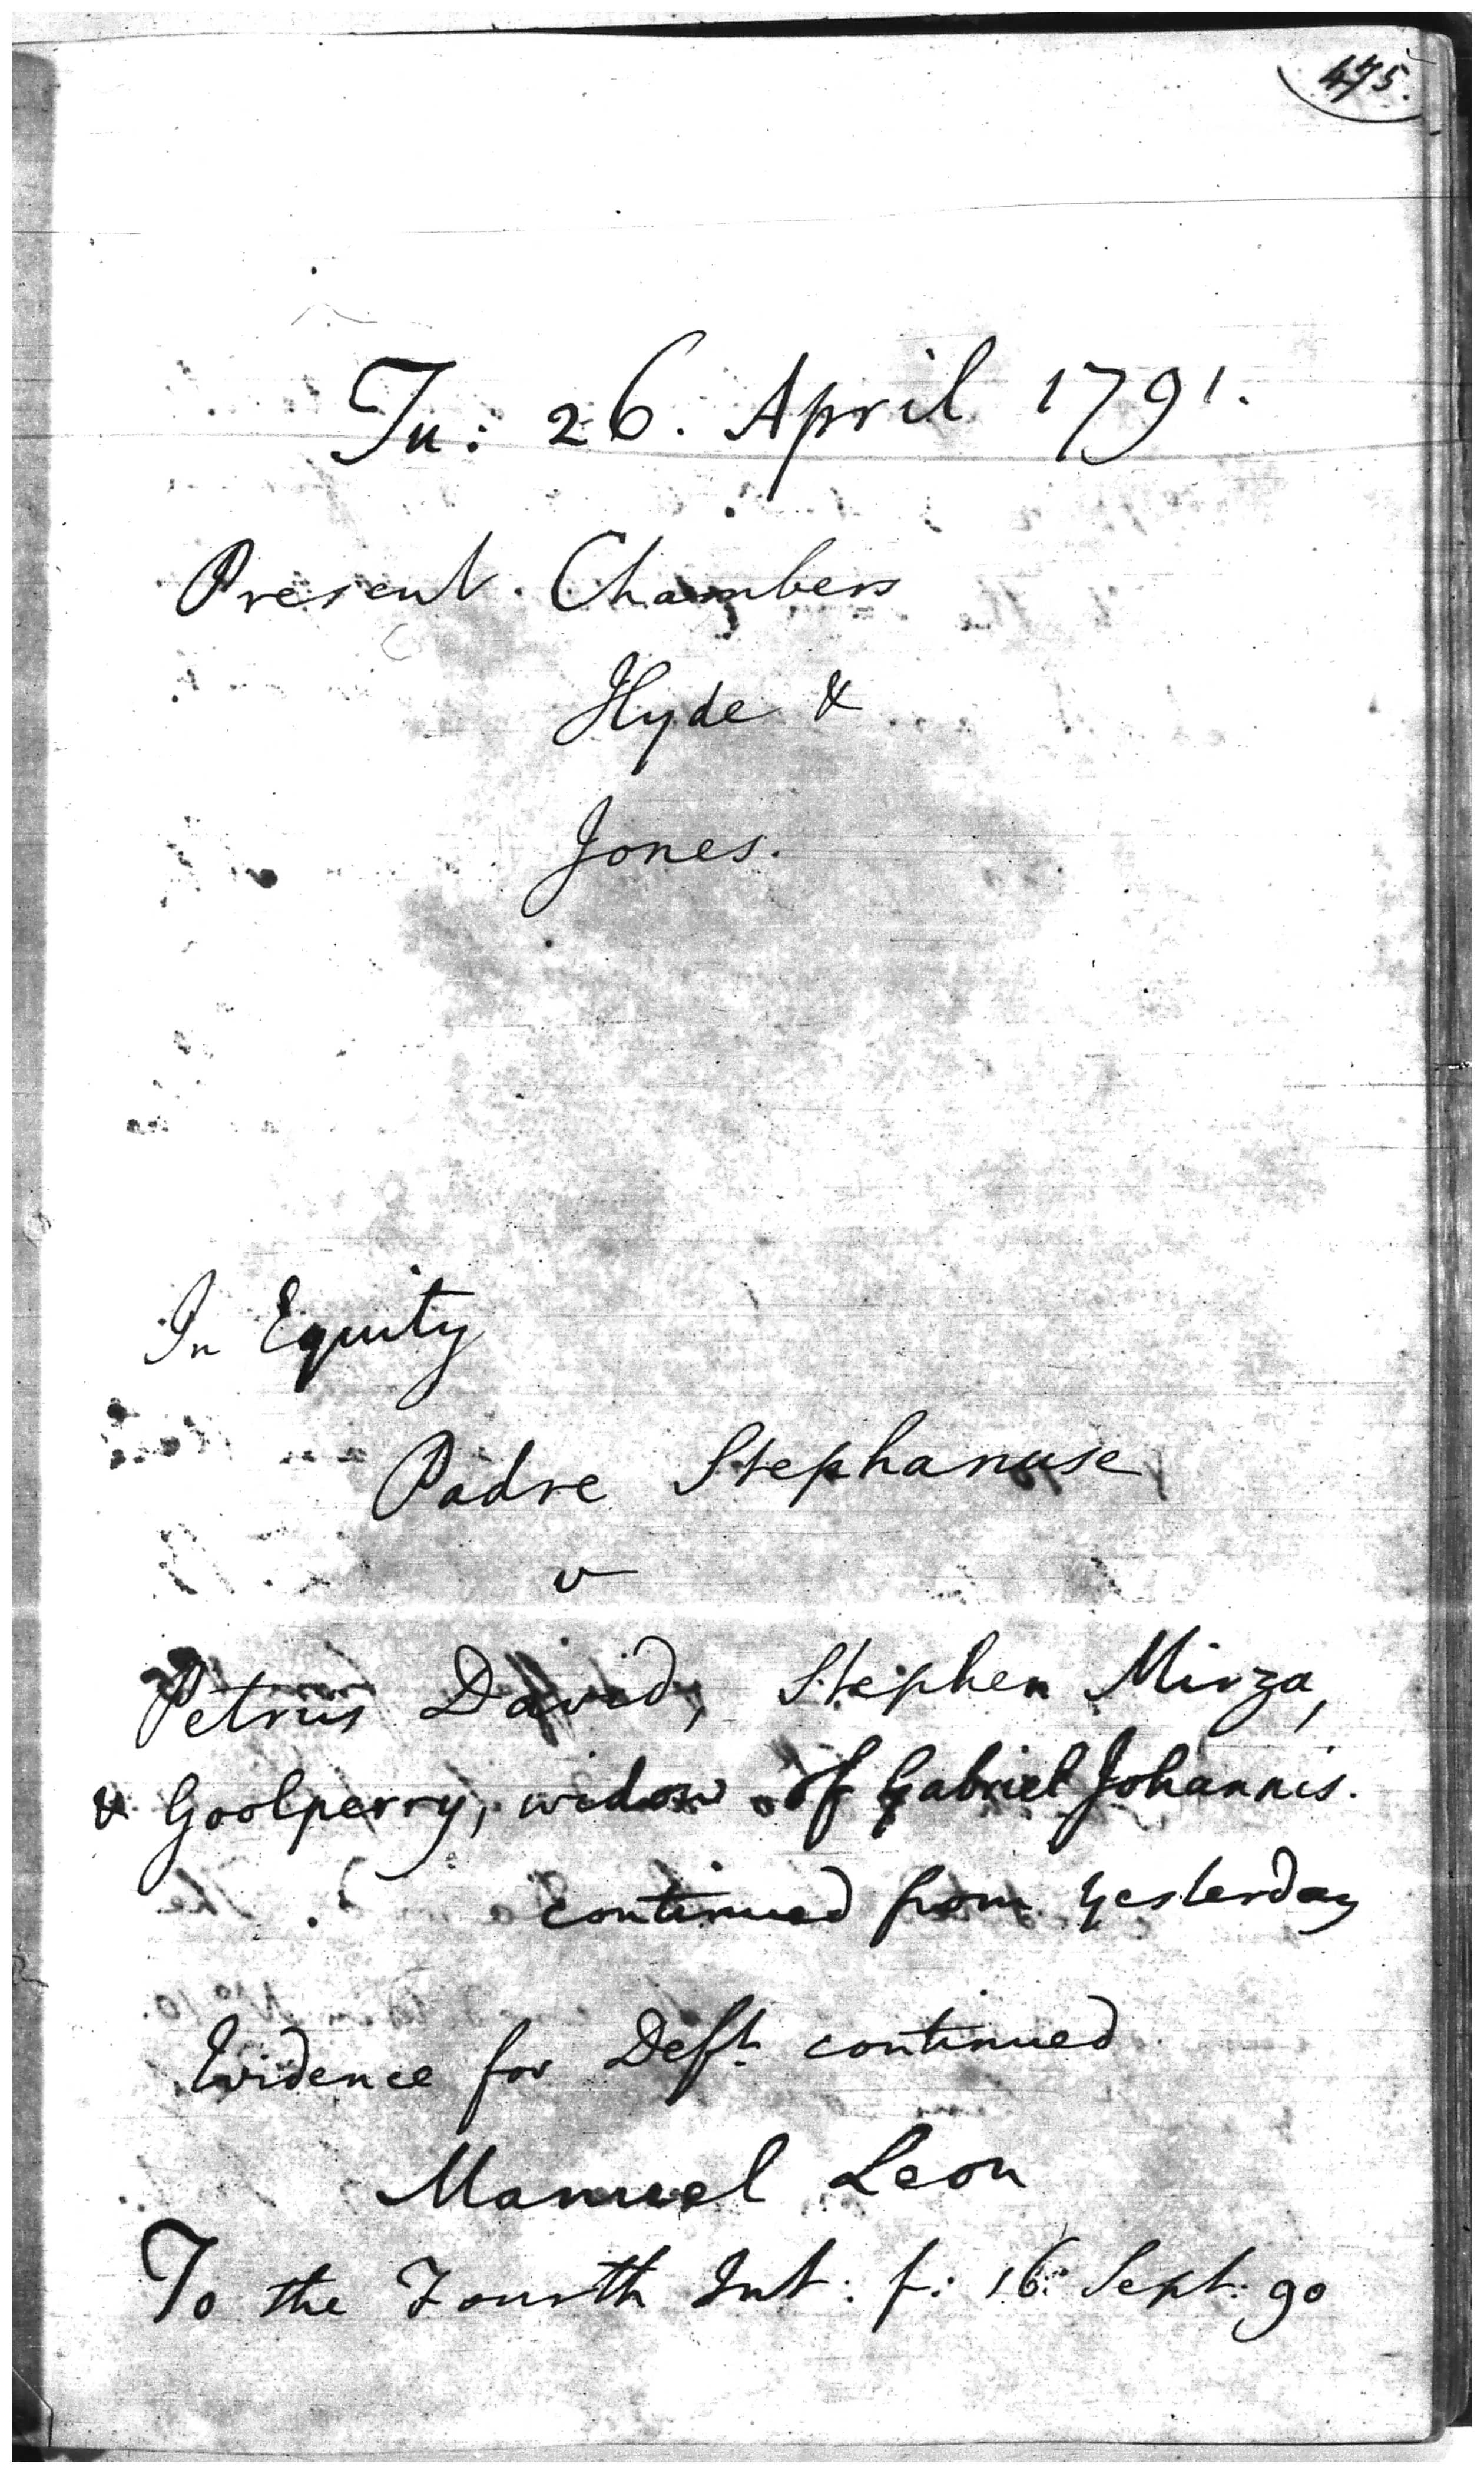 475.
Tu: 26. April 1791.
Present. Chambers
Hyde &
Jones.
In Equity
Padre Stephanuse
v
Petrus David, Stephen Mirza,
& Goolperry, widow of Gabriel Johannis.
continued from yesterday
Evidence for Deft. continued
Manuel Leon
To the Fourth Int: f: 16. Sept: 90